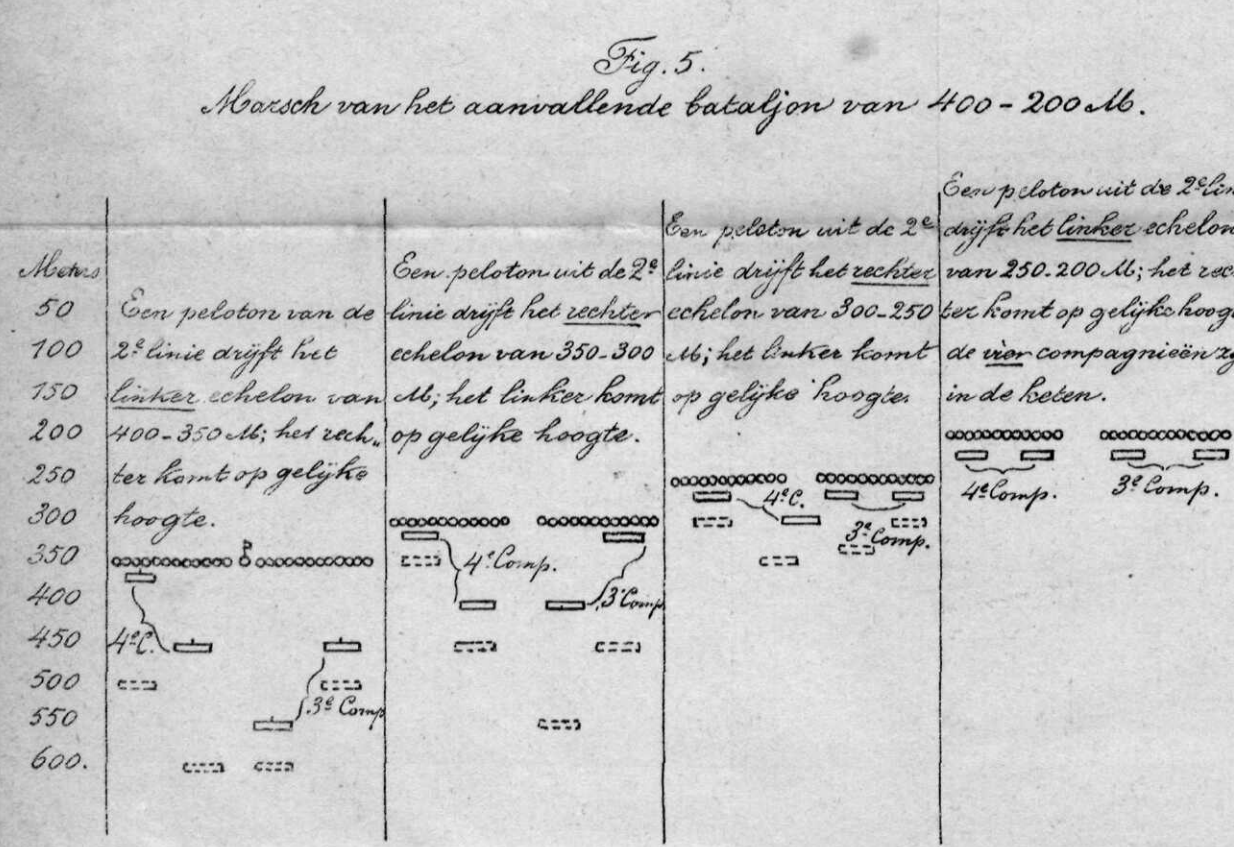 Fig. 5.
Marsch van het aanvallende bataljon van 400-200 M.
Meters
50
100
150
200
250
300
350
400
450
500
550
600.
Een peloton van de
2e linie drijft het
linker echelon van
400-350 M; het rech„
ter komt op gelijke
hoogte.
4e C.
3e Comp
Een peloton uit de 2e
linie drijft het rechter
echelon van 350-300
M; het linker komt
op gelijke hoogte.
4e Comp.
3e Comp
Een peloton uit de 2e
linie drijft het rechter
echelon van 300-250
M; het linker komt
op gelijke hoogte.
4e C.
3e Comp.
Een peloton uit de 2e lin
drijft het linker echelon
van 250-200 M; het rec
ter komt op gelijke hoog
de vier compagnieën z
in de keten.
4e Comp.
3e Comp.